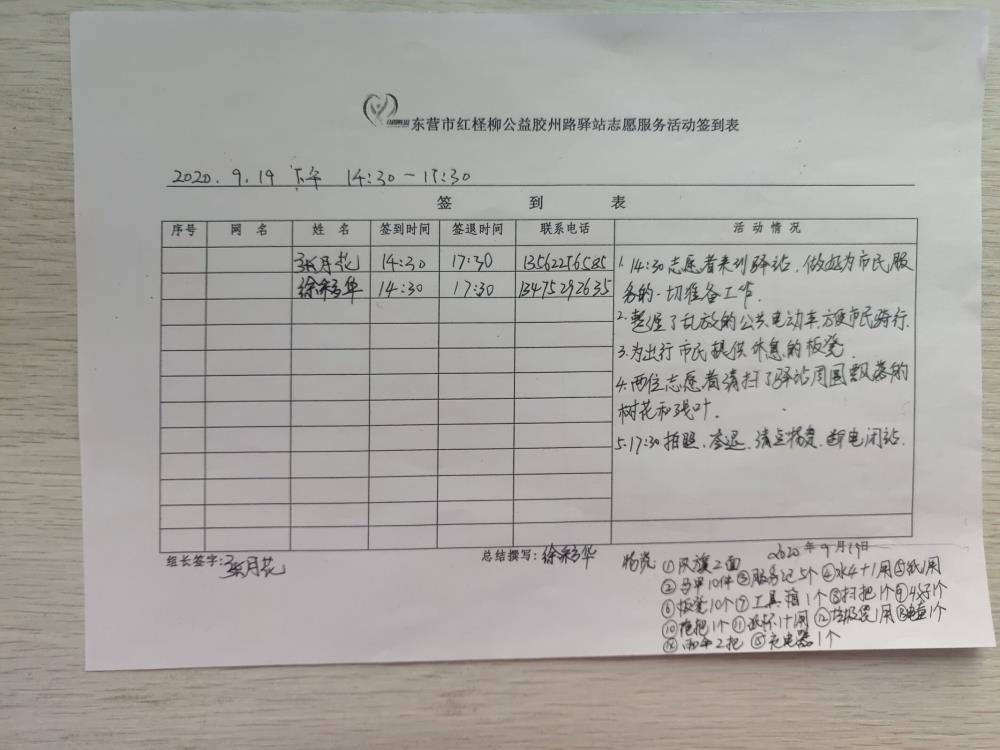 东营市红柽柳公益胶州路驿站志愿服务活动签到表
2020.9.19 下午 14:30-17:30
签 到 表
序号 网 名 姓 名 签到时间 签退时间 联系电话 活 动 情 况
张月花 14:30 17:30 13562256585
徐彩华 14:30 17:30 13475292635
1. 14:30志愿者来到驿站,做好为市民服
务的一切准备工作.
2. 整理了乱放的公共电动车,方便市民骑行.
3. 为出行市民提供休息的板凳.
4. 两位志愿者清扫了驿站周围飘落的
树花和残叶.
5. 17:30拍照、签退、清点物资、断电闭站.
组长签字:张月花
总结撰写:徐彩华
2020年9月19日
物资 ①风旗2面
②马甲10件 ③服务记5个 ④水4+1用 ⑤纸1用
⑥板凳10个 ⑦工具箱1个 ⑧扫把1个
⑩拖把1个 ⑪纸杯1+1用 ⑫垃圾袋1用
⑭雨伞2把 ⑮充电器1个